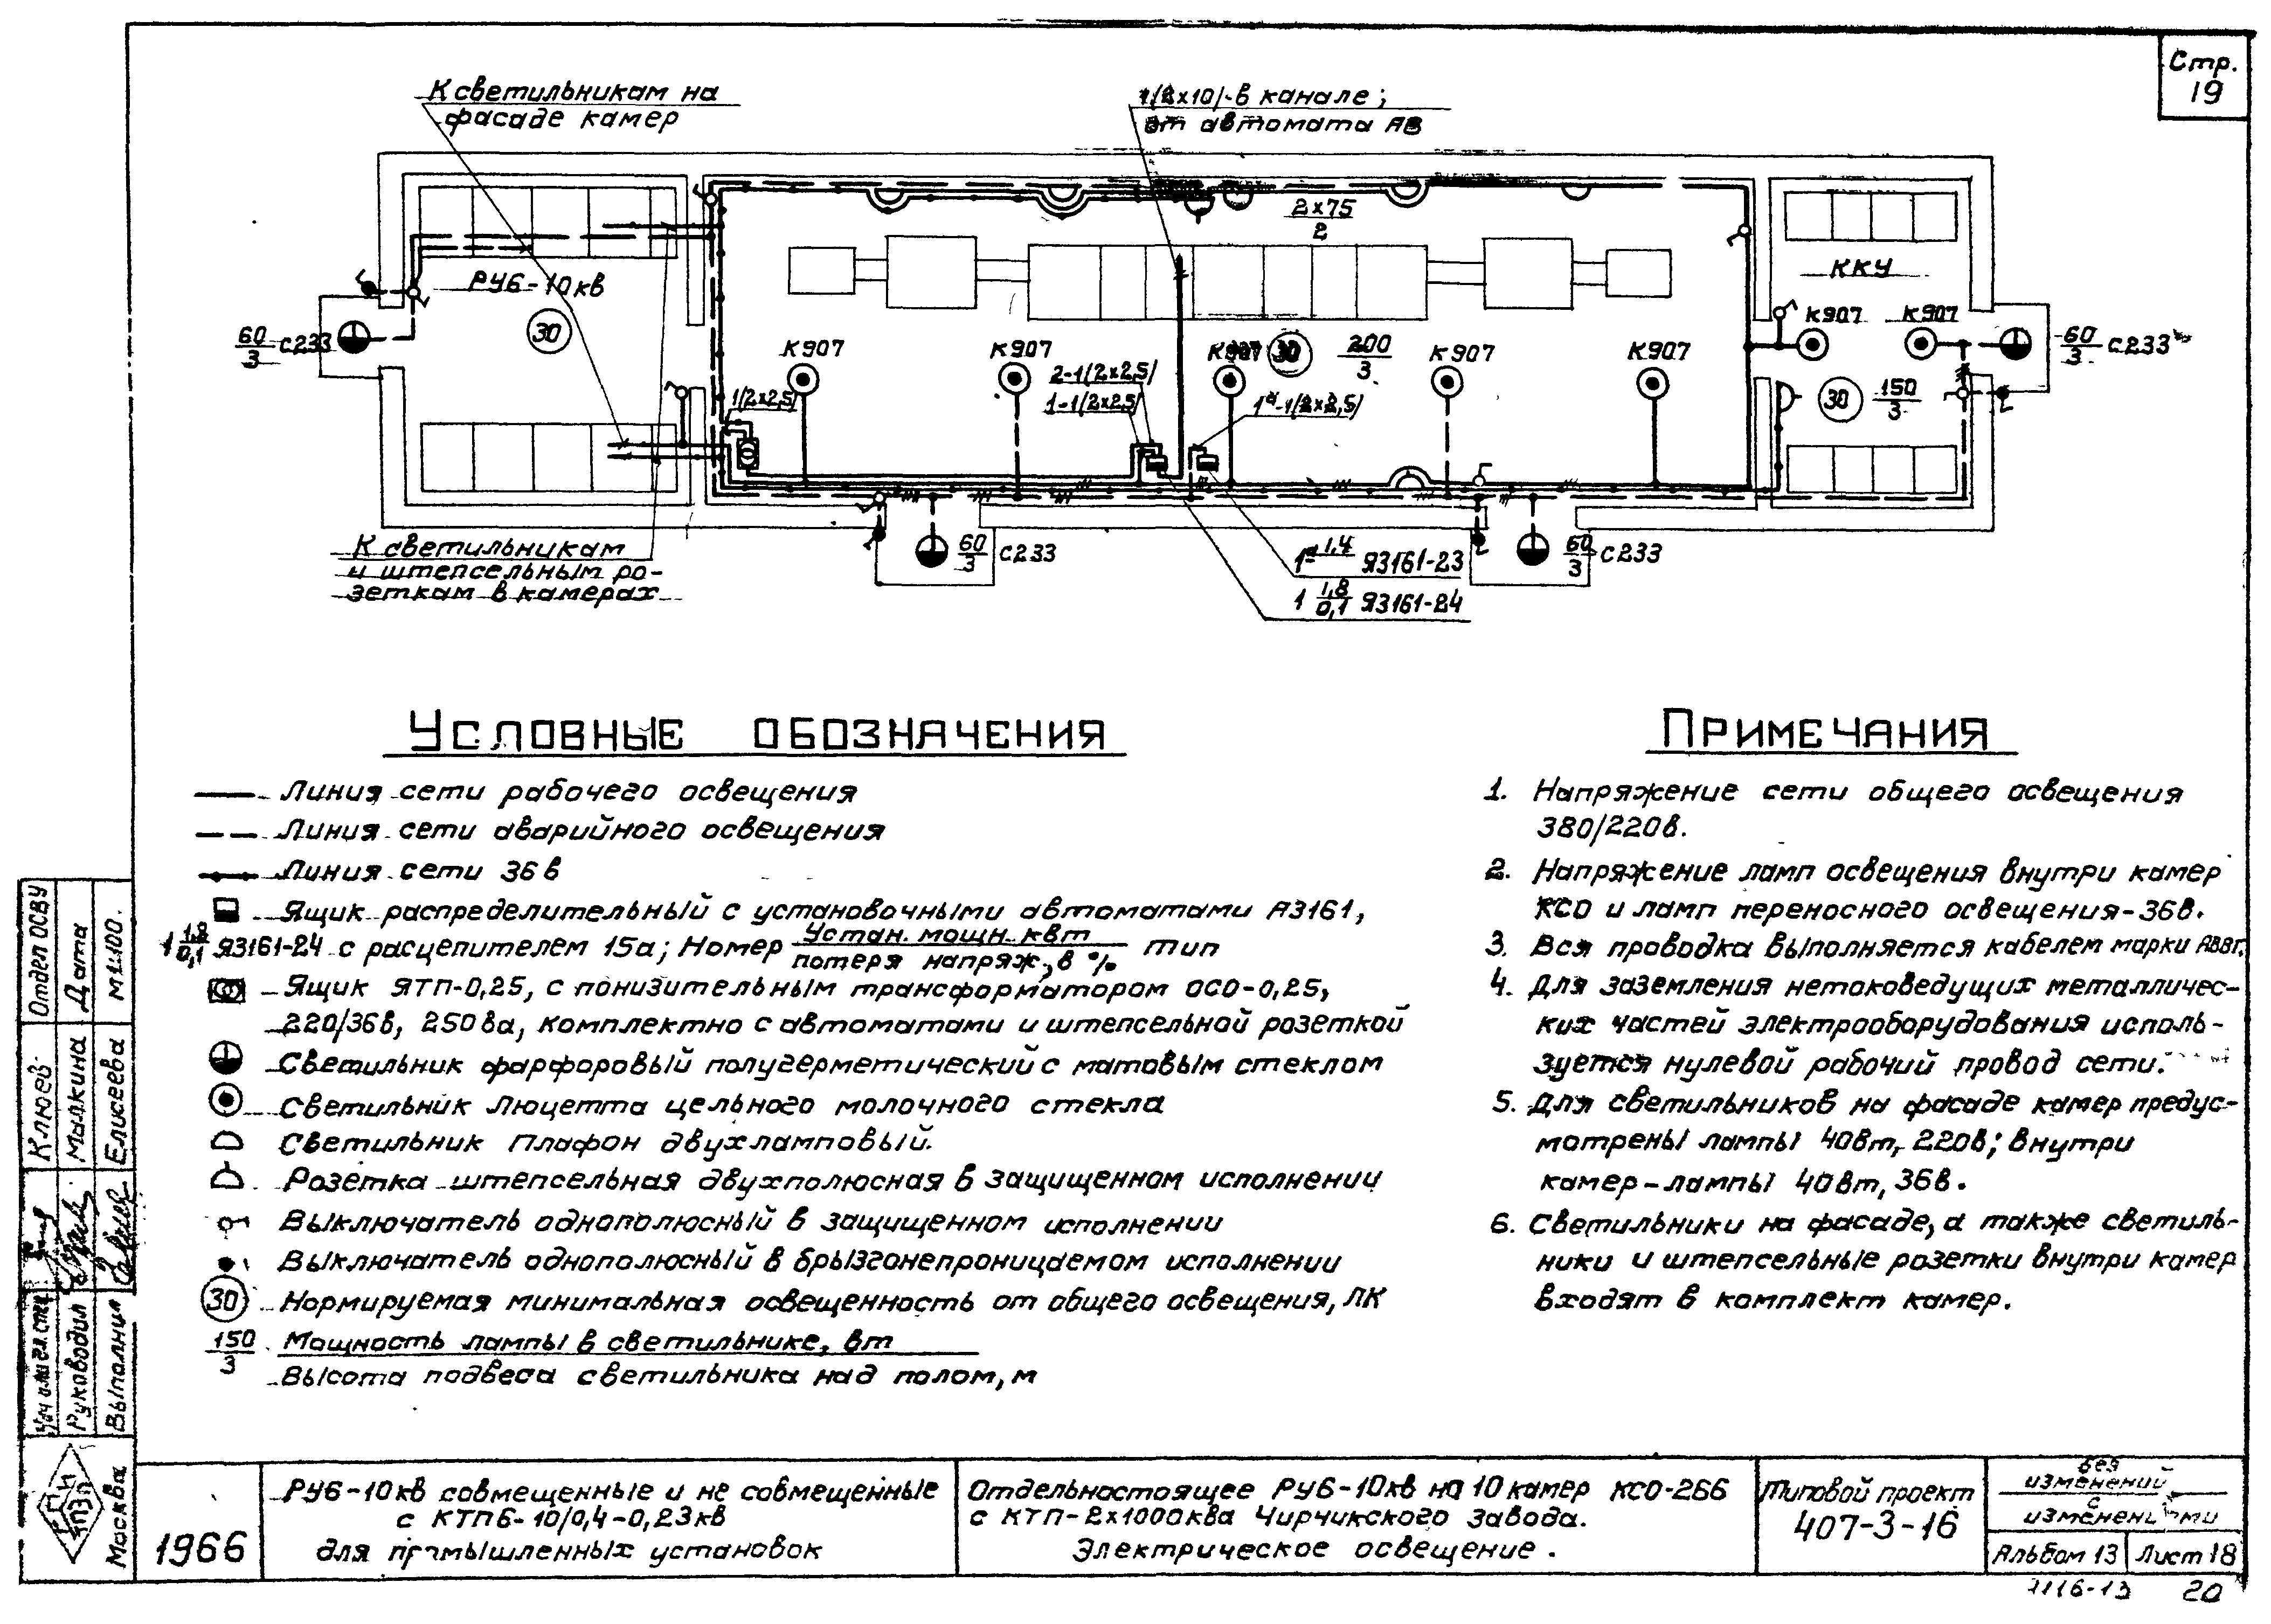 Стр.
19
К светильникам на
фасаде камер
1/2х10/-в канале;
от автомата АВ
2х75
2
РУ6-10кв
30
60
3
С233
К907
К907
К907
30
200
3
К907
К907
ККУ
К907
К907
60
3
С233
30
150
3
1/2х2,5/
2-1/2х2,5/
1-1/2х2,5/
1ª-1/2х2,5/
К светильникам
и штепсельным ро-
зеткам в камерах
60
3
С233
1ª 1,4 ЯЗ161-23
1 1,8
0,1 ЯЗ161-24
60
3
С233
Условные обозначения
Линия сети рабочего освещения
Линия сети аварийного освещения
Линия сети 36в
Ящик распределительный с установочными автоматами А3161,
1 1,8
0,1 ЯЗ161-24 с расцепителем 15а; Номер Устан. мощн. квт
потеря напряж., в % тип
Ящик ЯТП-0,25, с понизительным трансформатором ОСО-0,25,
220/36в, 250ва, комплектно с автоматами и штепсельной розеткой
Светильник фарфоровый полугерметический с матовым стеклом
Светильник Люцетта цельного молочного стекла
Светильник Плафон двухламповый.
Розетка штепсельная двухполюсная в защищенном исполнении
Выключатель однополюсный в защищенном исполнении
Выключатель однополюсный в брызгонепроницаемом исполнении
30 Нормируемая минимальная освещенность от общего освещения, ЛК
150 Мощность лампы в светильнике, вт
3 Высота подвеса светильника над полом, м
Примечания
1. Напряжение сети общего освещения
380/220в.
2. Напряжение ламп освещения внутри камер
КСО и ламп переносного освещения-36в.
3. Вся проводка выполняется кабелем марки АВВГ.
4. Для заземления нетоковедущих металличес-
ких частей электрооборудования исполь-
зуется нулевой рабочий провод сети.
5. Для светильников на фасаде камер предус-
мотрены лампы 40вт, 220в; внутри
камер-лампы 40вт, 36в.
6. Светильники на фасаде, а также светиль-
ники и штепсельные розетки внутри камер
входят в комплект камер.
Отдел ОСВУ
Дата
М1:100.
Клюев
Малкина
Елисеева
Руководил
Выполнил
Москва
1966
РУ6-10кв совмещенные и не совмещенные
с КТП6-10/0,4-0,23кв
для промышленных установок
Отдельностоящее РУ6-10кв на 10 камер КСО-266
с КТП-2х1000ква Чирчикского завода.
Электрическое освещение.
Типовой проект
407-3-16
без
изменений
с
изменениями
Альбом 13
Лист 18
1116-13
20